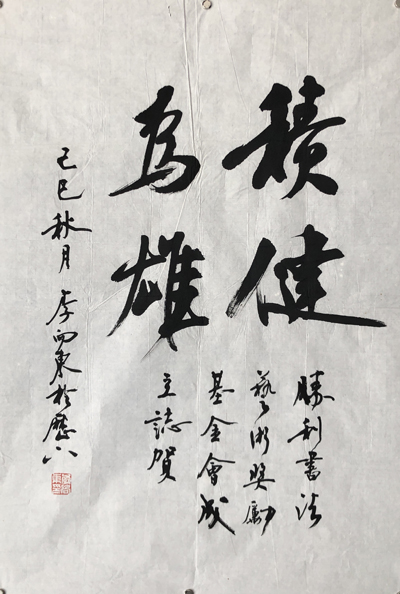 積健
為雄
勝利書法
藝術獎勵
基金會成
立誌賀
己巳秋月李向東於歷下